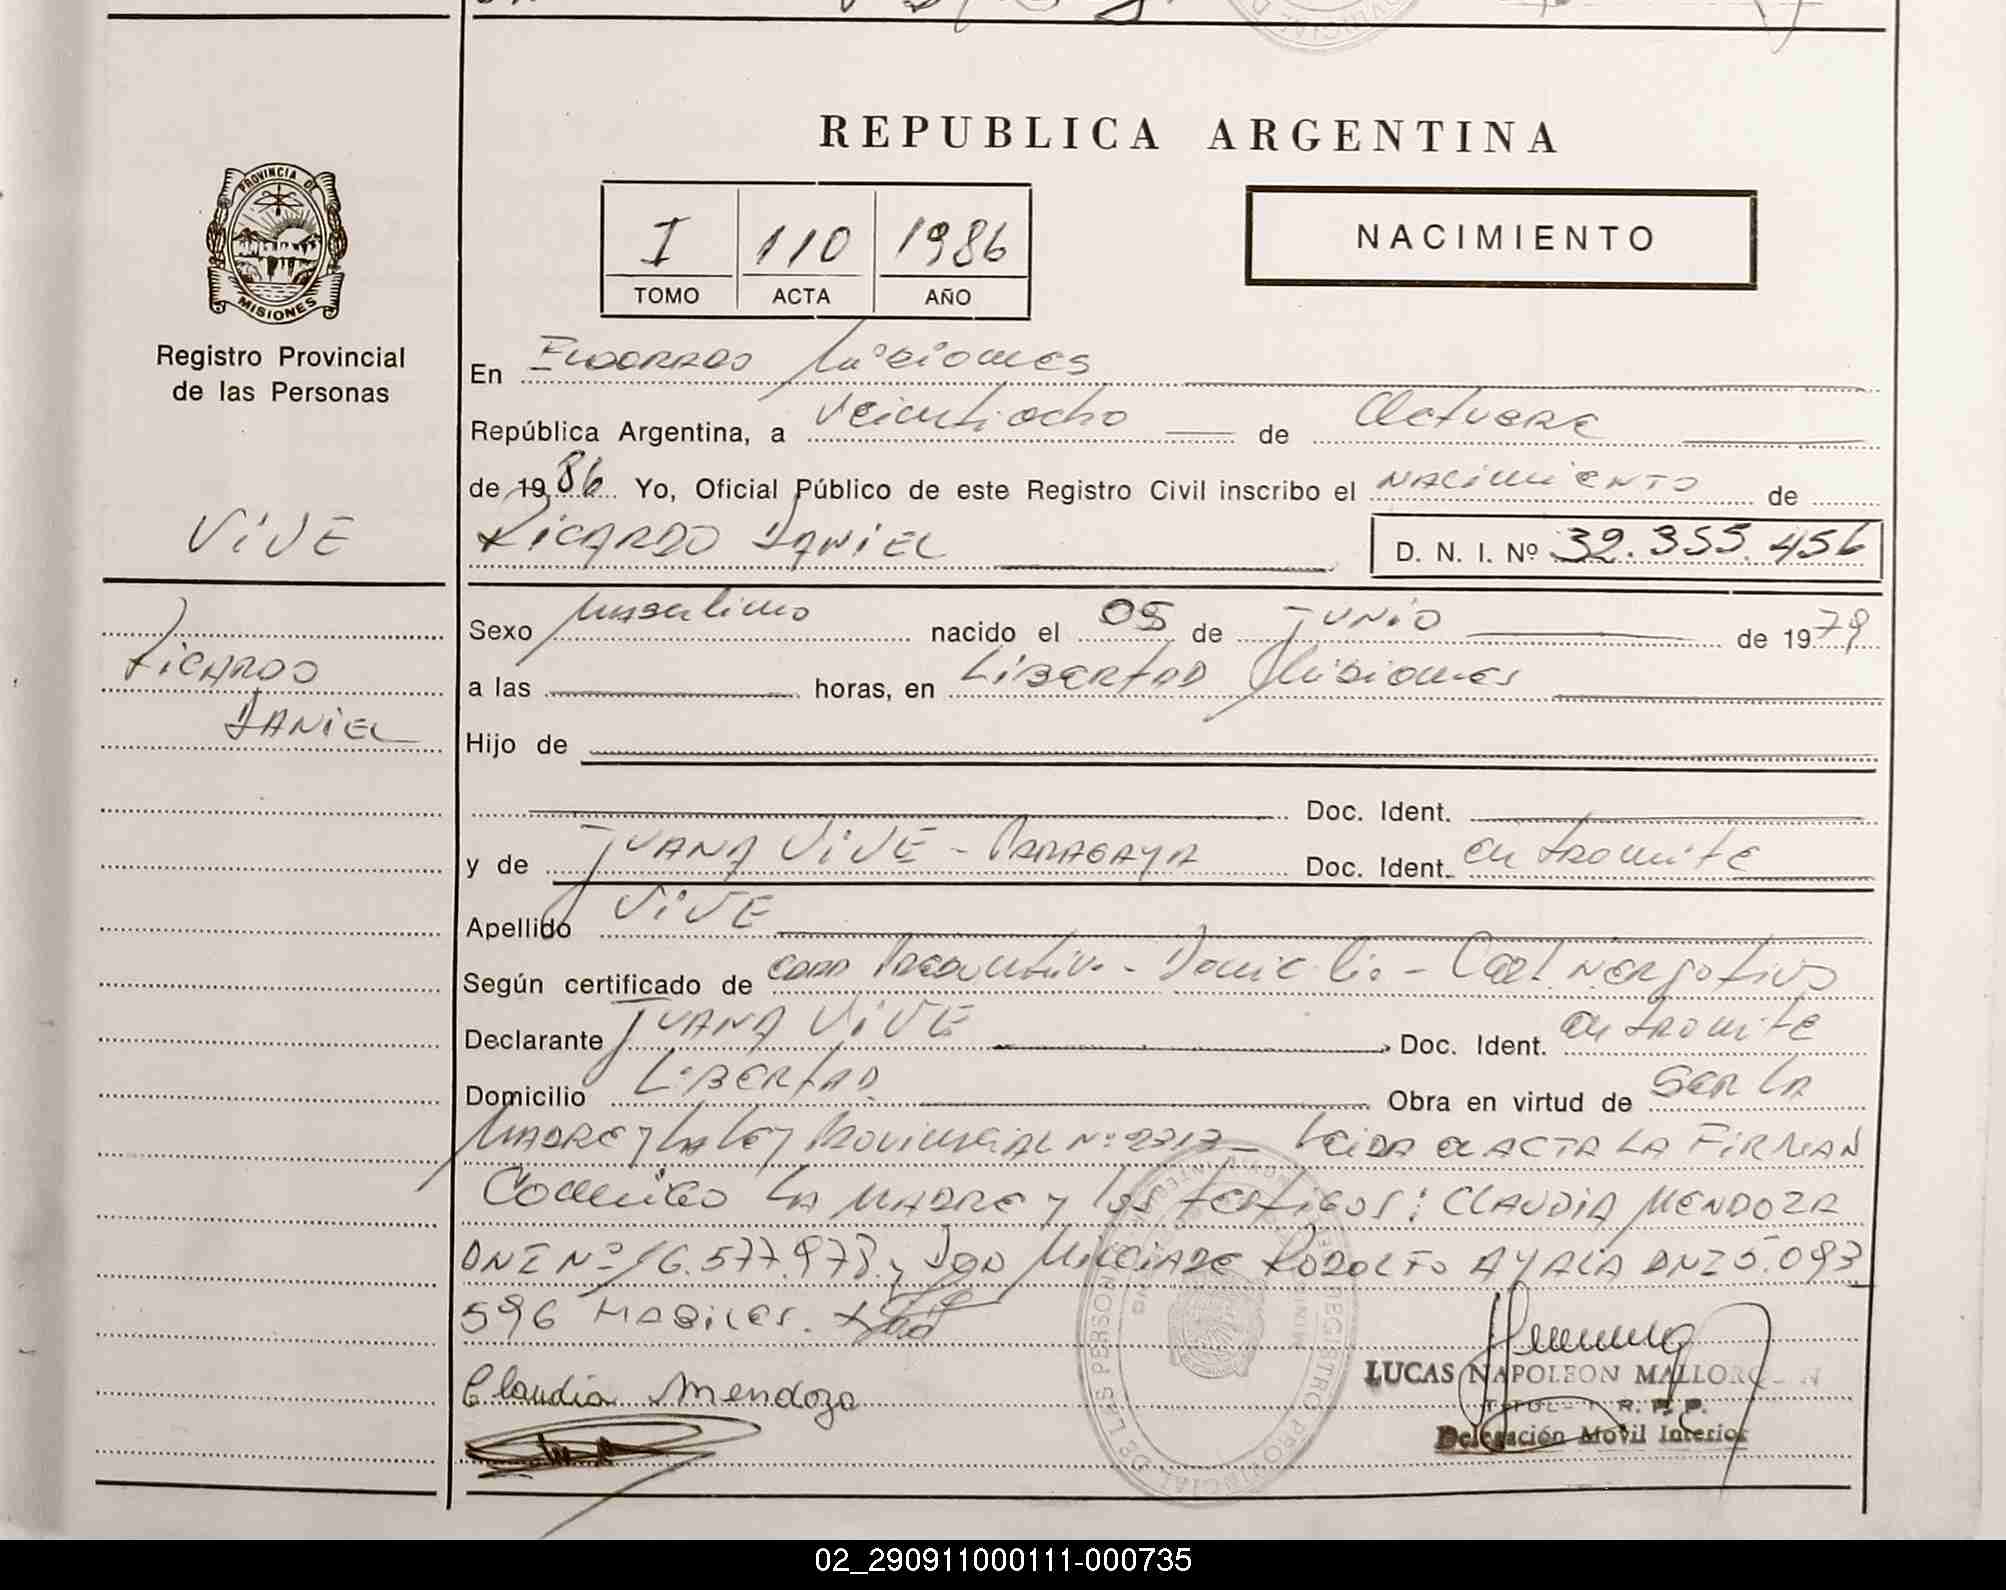 REPUBLICA ARGENTINA
PROVINCIA DE
MISIONES
Registro Provincial
de las Personas
I 110 1986
TOMO ACTA AÑO
NACIMIENTO
En ELDORADO Misiones
República Argentina, a Veintiocho de Octubre
de 1986 Yo, Oficial Público de este Registro Civil inscribo el NACIMIENTO de
RICARDO DANIEL D. N. I. Nº 32.355.456
VIVE
RICARDO
DANIEL
Sexo Masculino nacido el 05 de JUNIO de 1979
a las horas, en LIBERTAD Misiones
Hijo de
Doc. Ident.
y de JUANA VIVE - PARAGAYA Doc. Ident. en tramite
Apellido VIVE
Según certificado de - Domicilio -
Declarante JUANA VIVE Doc. Ident. en tramite
Domicilio LIBERTAD Obra en virtud de SER LA
MADRE y LA Ley PROVINCIAL Nº LEIDA el ACTA LA FIRMAN
Conmigo LA MADRE y los testigos: CLAUDIA MENDOZA
DNI Nº 16.577.978 y MILCIADE RODOLFO AYALA DNI 5.093
596 HABILES.
Claudia Mendoza
LUCAS NAPOLEON
R. P. P.
Delegación Movil Interior
REGISTRO PROVINCIAL DE LAS PERSONAS
02_290911000111-000735